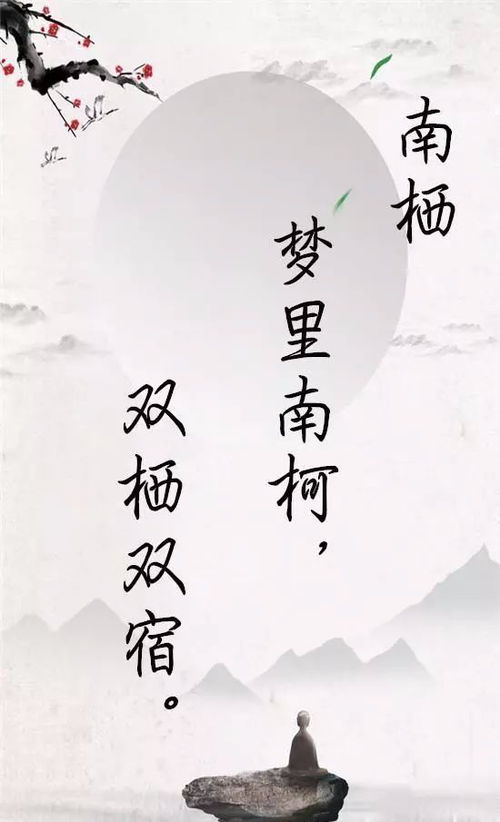 南栖
梦里南柯，
双栖双宿。